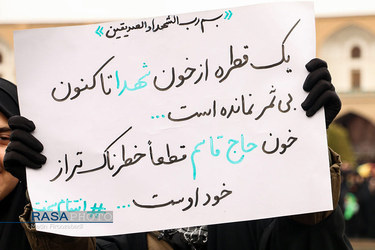 «بسم رب الشهداء والصدیقین»
یک قطره از خون شهدا تاکنون
بی ثمر نمانده است...
خون حاج قاسم قطعاً خطرناک تر از
خود اوست...
#انتقام_سخت
RASAPHOTO